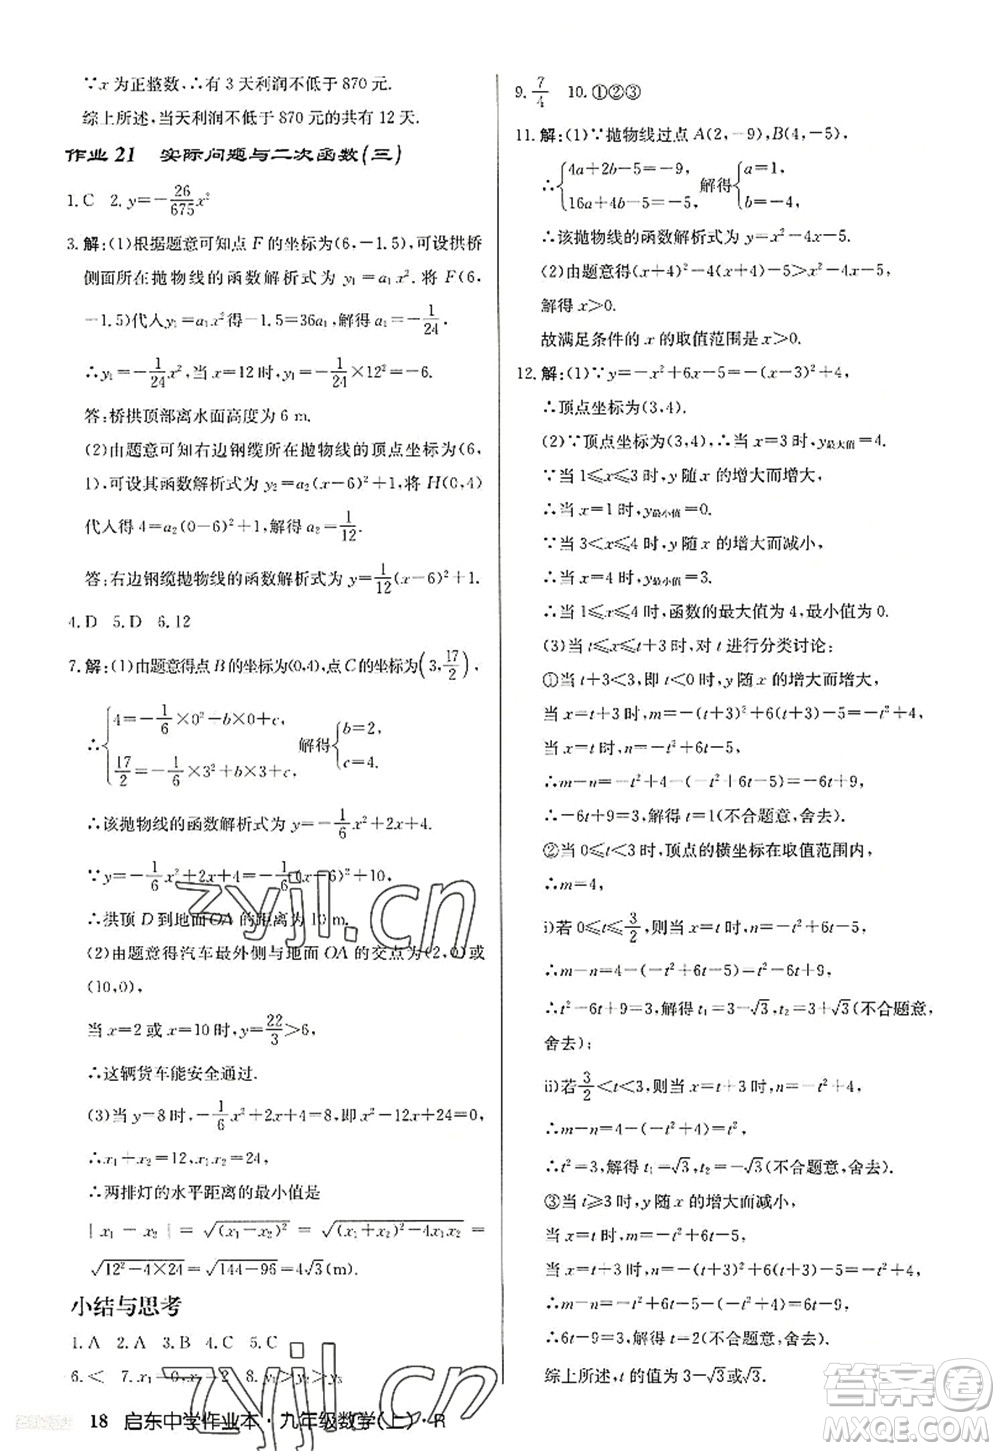 ∵x 为正整数,∴有 3 天利润不低于 870 元.
综上所述,当天利润不低于 870 元的共有 12 天.
作业 21 实际问题与二次函数(三)
1. C 2. y=-26/675 x²
3. 解:(1)根据题意可知点 F 的坐标为(6,-1.5),可设拱桥
侧面所在抛物线的函数解析式为 y₁=a₁x².将 F(6,
-1.5)代入 y₁=a₁x² 得-1.5=36a₁,解得 a₁=-1/24.
∴y₁=-1/24 x²,当 x=12 时,y₁=-1/24×12²=-6.
答:桥拱顶部离水面高度为 6 m.
(2)由题意可知右边钢缆所在抛物线的顶点坐标为(6,
1),可设其函数解析式为 y₂=a₂(x-6)²+1,将 H(0,4)
代入得 4=a₂(0-6)²+1,解得 a₂=1/12.
答:右边钢缆抛物线的函数解析式为 y=1/12(x-6)²+1.
4. D 5. D 6. 12
7. 解:(1)由题意得点 B 的坐标为(0,4),点 C 的坐标为(3,17/2),
∴{4=-1/6×0²+b×0+c, 17/2=-1/6×3²+b×3+c, 解得{b=2, c=4.
∴该抛物线的函数解析式为 y=-1/6 x²+2x+4.
∵y=-1/6 x²+2x+4=-1/6(x-6)²+10,
∴拱顶 D 到地面 OA 的距离为 10 m.
(2)由题意得汽车最外侧与地面 OA 的交点为(2,0)或
(10,0),
当 x=2 或 x=10 时,y=22/3>6,
∴这辆货车能安全通过.
(3)当 y=8 时,-1/6 x²+2x+4=8,即 x²-12x+24=0,
∴x₁+x₂=12,x₁x₂=24,
∴两排灯的水平距离的最小值是
|x₁-x₂|=√(x₁-x₂)²=√(x₁+x₂)²-4x₁x₂=
√12²-4×24=√144-96=4√3(m).
小结与思考
1. A 2. A 3. B 4. C 5. C
6. < 7. x₁=0,x₂=2 8. y₁>y₂>y₃
18 启东中学作业本·九年级数学(上)·R
9. 7/4 10. ①②③
11. 解:(1)∵抛物线过点 A(2,-9),B(4,-5),
∴{4a+2b-5=-9, 16a+4b-5=-5, 解得{a=1, b=-4,
∴该抛物线的函数解析式为 y=x²-4x-5.
(2)由题意得(x+4)²-4(x+4)-5>x²-4x-5,
解得 x>0.
故满足条件的 x 的取值范围是 x>0.
12. 解:(1)∵y=-x²+6x-5=-(x-3)²+4,
∴顶点坐标为(3,4).
(2)∵顶点坐标为(3,4),∴当 x=3 时,y最大值=4.
∵当 1⩽x⩽3 时,y 随 x 的增大而增大,
∴当 x=1 时,y最小值=0.
∵当 3<x⩽4 时,y 随 x 的增大而减小,
∴当 x=4 时,y最小值=3.
∴当 1⩽x⩽4 时,函数的最大值为 4,最小值为 0.
(3)当 t⩽x⩽t+3 时,对 t 进行分类讨论:
①当 t+3<3,即 t<0 时,y 随 x 的增大而增大,
当 x=t+3 时,m=-(t+3)²+6(t+3)-5=-t²+4,
当 x=t 时,n=-t²+6t-5,
∴m-n=-t²+4-(-t²+6t-5)=-6t+9,
∴-6t+9=3,解得 t=1(不合题意,舍去).
②当 0⩽t<3 时,顶点的横坐标在取值范围内,
∴m=4,
i)若 0⩽t⩽3/2,当 x=t 时,n=-t²+6t-5,
∴m-n=4-(-t²+6t-5)=t²-6t+9,
∴t²-6t+9=3,解得 t₁=3-√3,t₂=3+√3(不合题意,
舍去);
ii)若 3/2<t<3,当 x=t+3 时,n=-t²+4,
∴m-n=4-(-t²+4)=t²,
∴t²=3,解得 t₁=√3,t₂=-√3(不合题意,舍去).
③当 t⩾3 时,y 随 x 的增大而减小,
当 x=t 时,m=-t²+6t-5,
当 x=t+3 时,n=-t²+4,
∴m-n=-t²+6t-5-(-t²+4)=6t-9,
∴6t-9=3,解得 t=2(不合题意,舍去).
综上所述,t 的值为 3-√3或√3.
zyjl.cn
zyjl.cn
答案圈
MXQE.COM